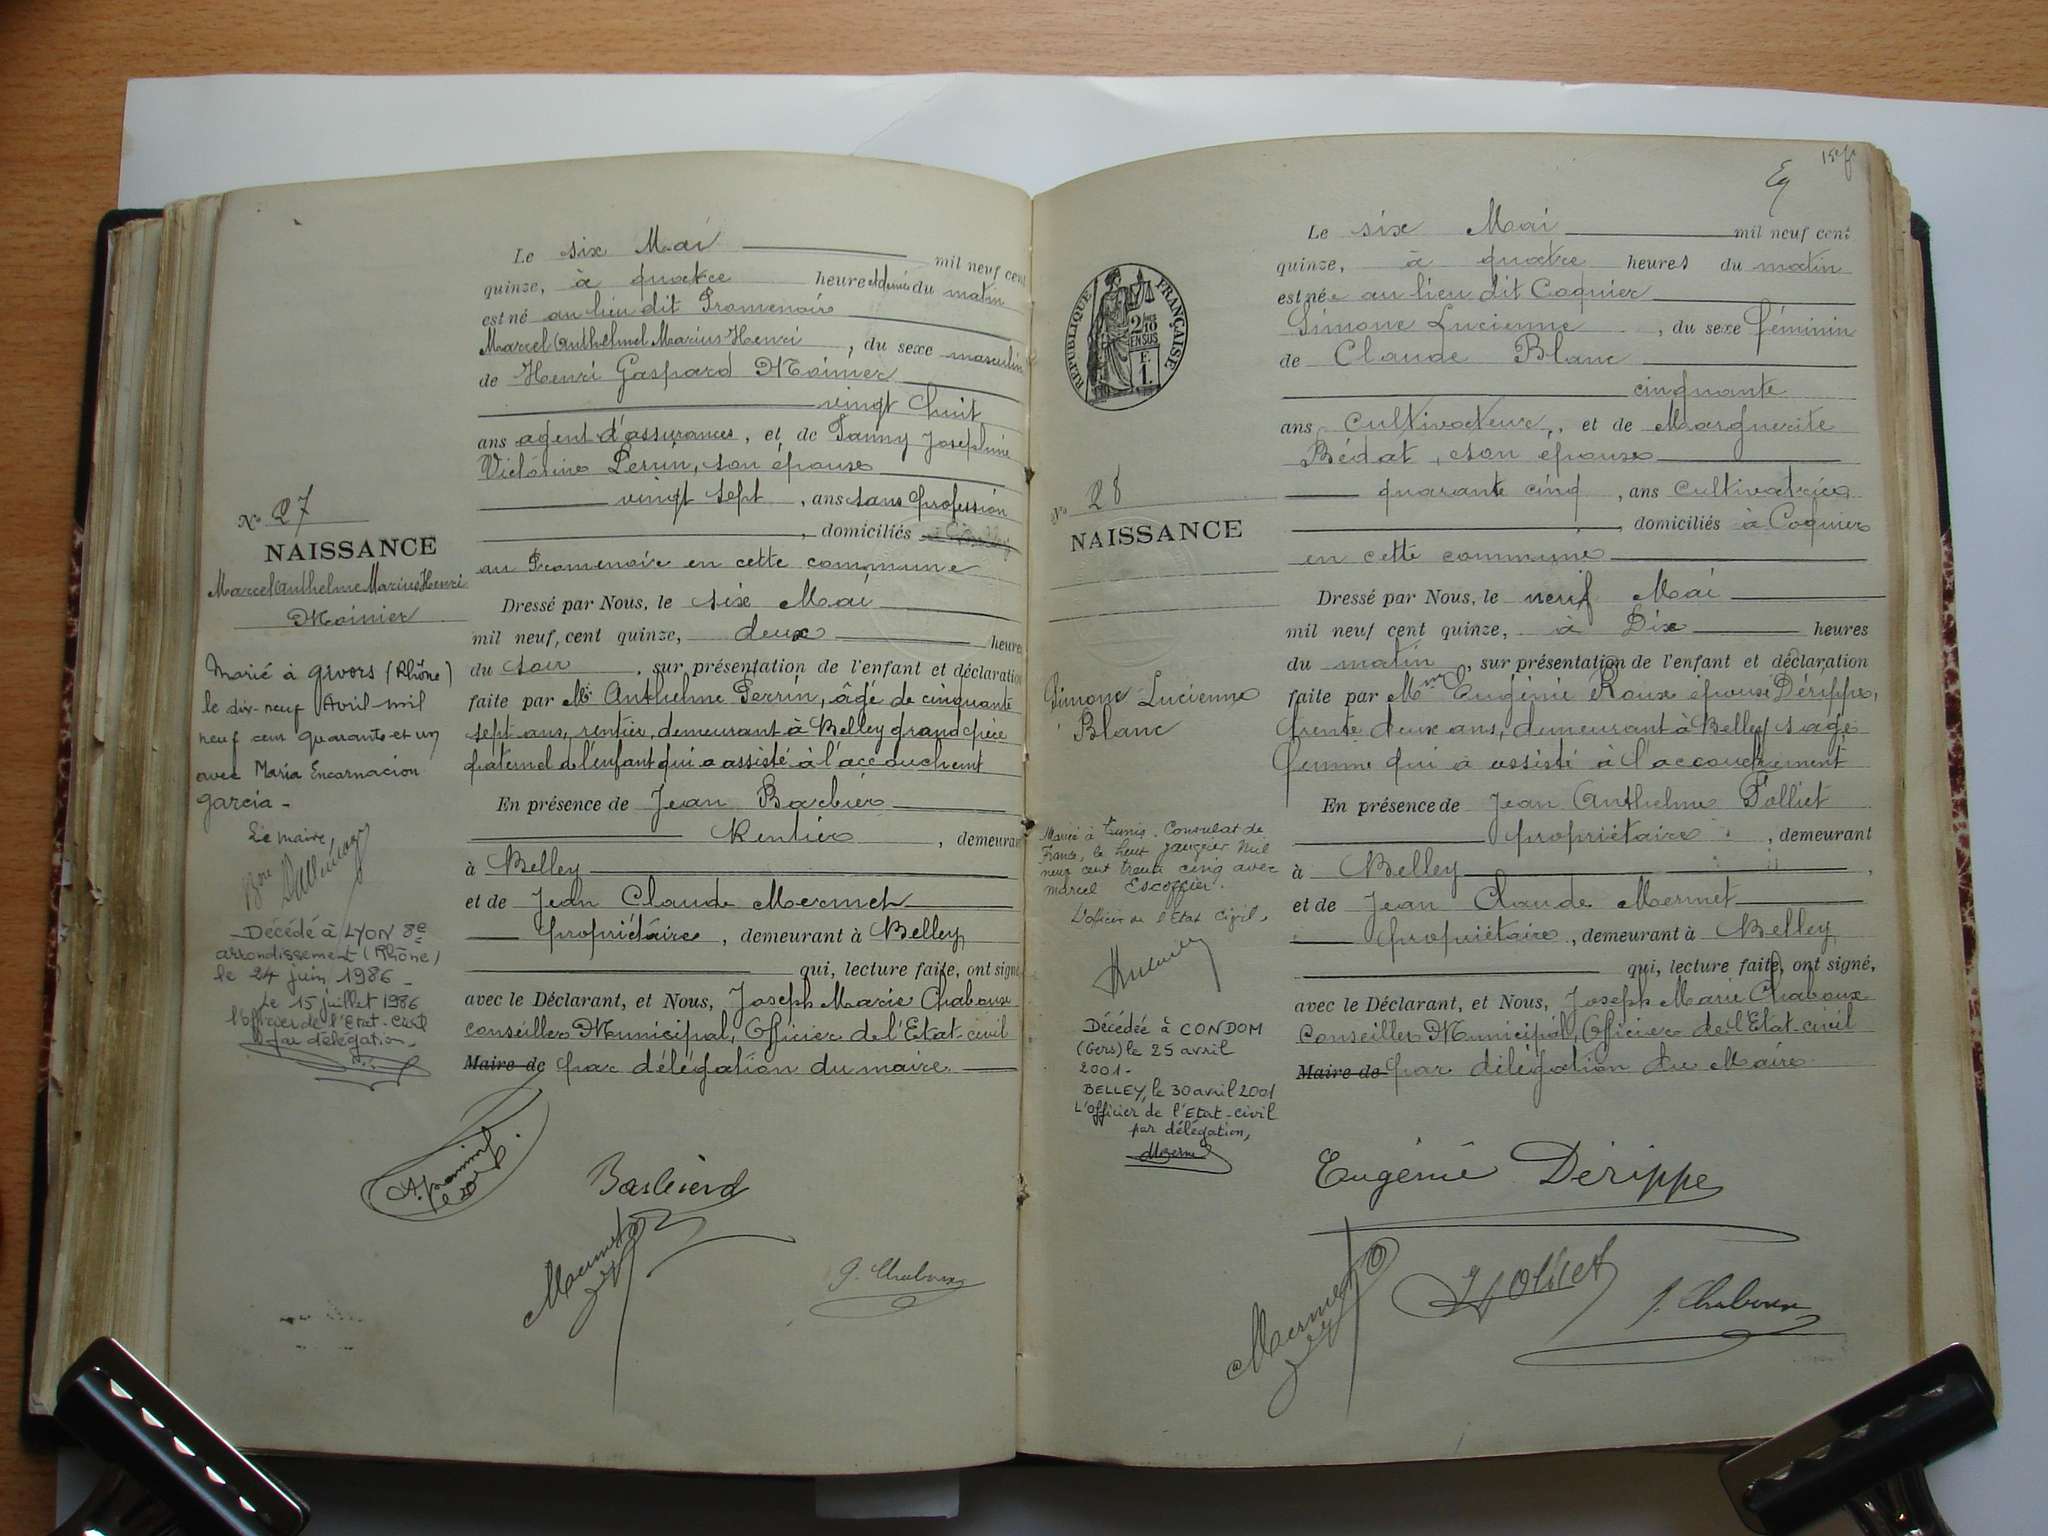 N° 27
NAISSANCE
Marcel Anthelme Marius Henri
Moinier
Marié à Givors (Rhône)
le dix-neuf Avril mil
neuf cent quarante et un
avec Maria Encarnacion
Garcia -
Le maire,
Décédé à LYON 8e
arrondissement (Rhône)
le 24 juin 1986 -
Le 15 juillet 1986
l'officier de l'Etat-Civil
par délégation -
Le six Mai mil neuf cent
quinze, à quatre heures et demie du matin
est né au lieu dit Promenoir
Marcel Anthelme Marius Henri, du sexe masculin
de Henri Gaspard Moinier
vingt huit
ans agent d'assurances, et de Fanny Joséphine
Victorine Perrin, son épouse
vingt sept, ans sans profession
, domiciliés
au Promenoir en cette commune
Dressé par Nous, le six Mai
mil neuf cent quinze, deux heures
du soir, sur présentation de l'enfant et déclaration
faite par Mr Anthelme Perrin, âgé de cinquante
sept ans, rentier, demeurant à Belley grand père
paternel de l'enfant qui a assisté à l'accouchemt
En présence de Jean Barbier
Rentier, demeurant
à Belley
et de Jean Claude Mermet
propriétaire, demeurant à Belley
qui, lecture faite, ont signé
avec le Déclarant, et Nous, Joseph Marie Chaboux
Conseiller Municipal, Officier de l'Etat-civil
Maire de par délégation du maire.
Mermet
J. Chaboux
RÉPUBLIQUE FRANÇAISE
2/10
EN SUS
F.
1.
N° 28
NAISSANCE
Simone Lucienne
Blanc
Mariée à Tunis. Consulat de
France, le huit janvier mil
neuf cent trente cinq avec
Marcel Escoffier.
L'officier de l'Etat Civil,
Décédée à CONDOM
(Gers) le 25 avril
2001 -
BELLEY, le 30 avril 2001
L'Officier de l'Etat-civil
par délégation,
Le six Mai mil neuf cent
quinze, à quatre heures du matin
est née au lieu dit Coquier
Simone Lucienne, du sexe féminin
de Claude Blanc
cinquante
ans Cultivateur, et de Marguerite
Bédat, son épouse
quarante cinq, ans cultivatrice
, domiciliés à Coquier
en cette commune
Dressé par Nous, le neuf Mai
mil neuf cent quinze, à Dix heures
du matin, sur présentation de l'enfant et déclaration
faite par Mme Eugénie Roux épouse Dérippe,
trente deux ans, demeurant à Belley sage
femme qui a assisté à l'accouchement
En présence de Jean Anthelme Polliet
propriétaire, demeurant
à Belley
et de Jean Claude Mermet
propriétaire, demeurant à Belley
qui, lecture faite, ont signé,
avec le Déclarant, et Nous, Joseph Marie Chaboux
Conseiller Municipal, Officier de l'Etat-civil
Maire de par délégation du Maire.
Eugénie Dérippe
Mermet
Polliet
J. Chaboux